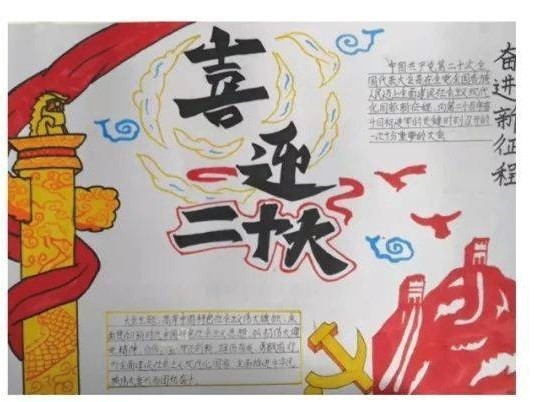 喜
迎
二十大
中国共产党第二十次全
国代表大会是在全党全国各族
人民迈上全面建设社会主义现代
化国家新征程、向第二个百年奋
斗目标进军的关键时刻召开的
一次十分重要的大会
奋进新征程
大会主题：高举中国特色社会主义伟大旗帜，全
面贯彻新时代中国特色社会主义思想，弘扬伟大建
党精神，自信自强、守正创新，踔厉奋发、勇毅前行
为全面建设社会主义现代化国家、全面推进中华民
族伟大复兴而团结奋斗